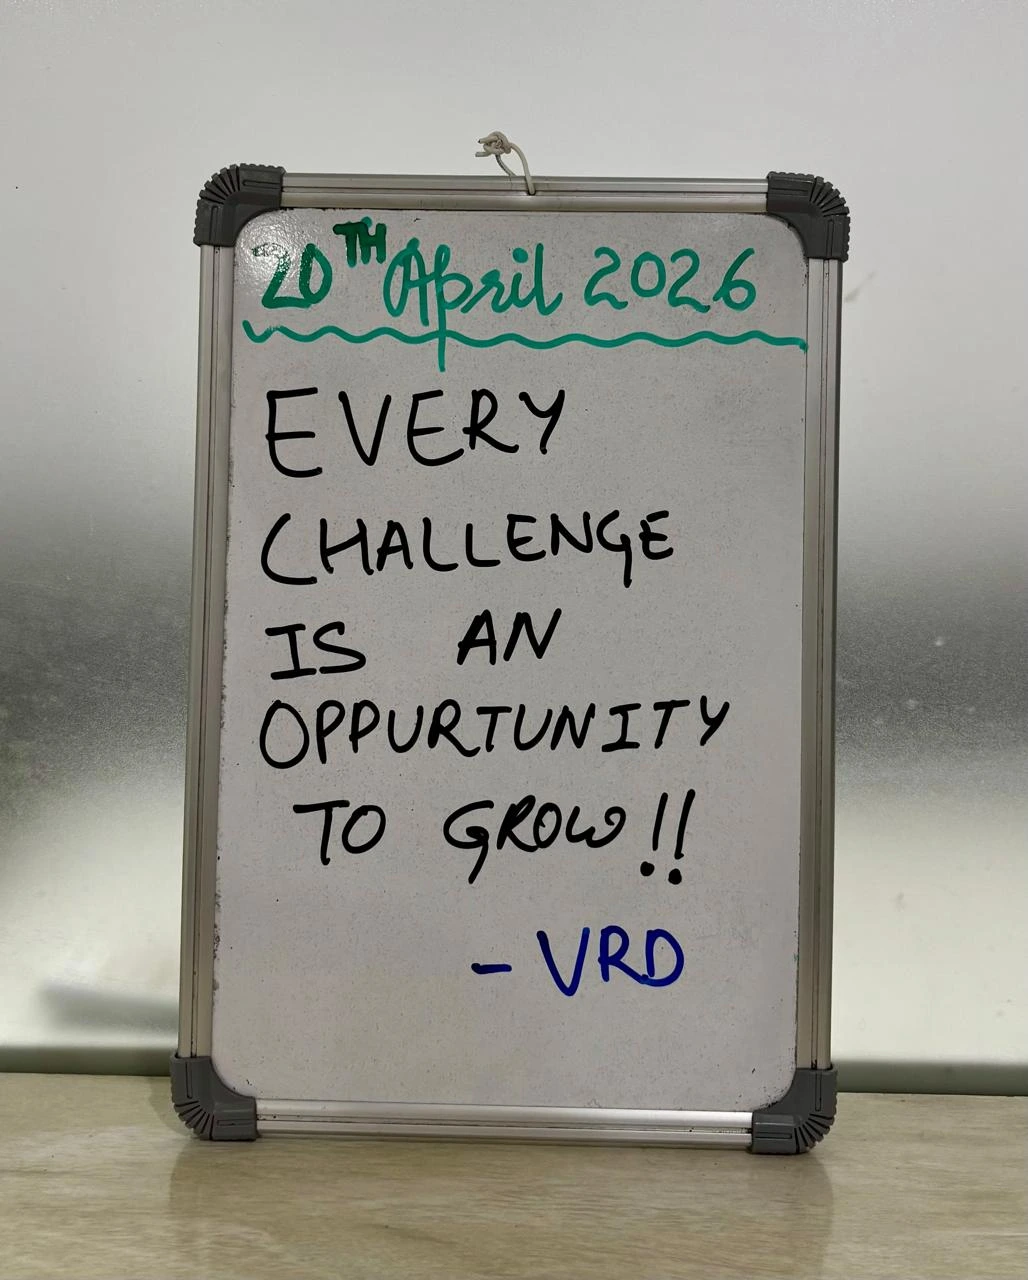 20TH April 2026
EVERY
CHALLENGE
IS AN
OPPURTUNITY
TO GROW!!
- VRD